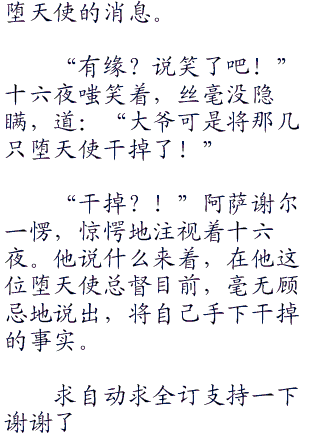 堕天使的消息。
“有缘？说笑了吧！”
十六夜嗤笑着，丝毫没隐
瞒，道：“大爷可是将那几
只堕天使干掉了！”
“干掉？！”阿萨谢尔
一愣，惊愕地注视着十六
夜。他说什么来着，在他这
位堕天使总督目前，毫无顾
忌地说出，将自己手下干掉
的事实。
求自动求全订支持一下
谢谢了